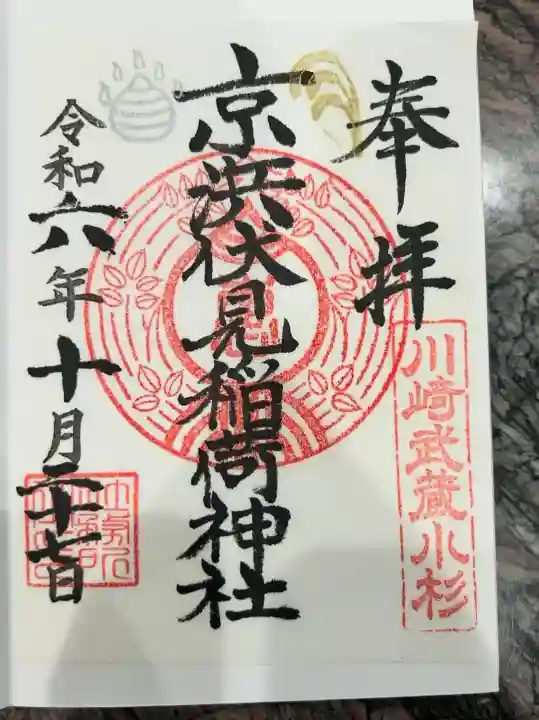 奉拝
川崎武蔵小杉
京浜伏見稲荷神社
令和六年十月二十七日